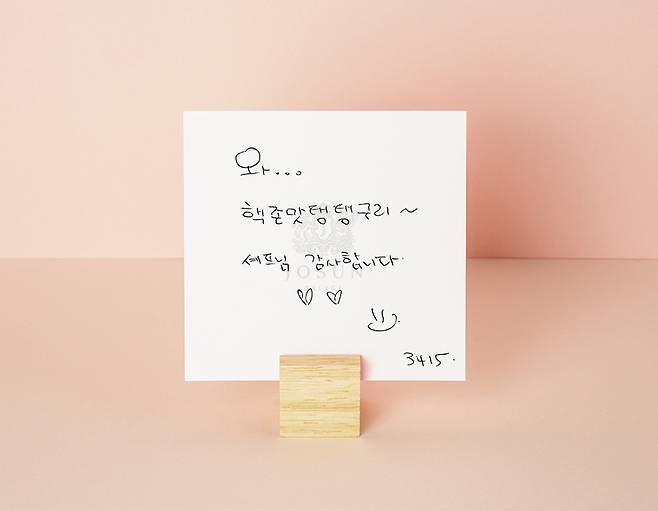 와...
핵존맛탱탱구리~
쎄프님 감사합니다.
JOSUN
3415.